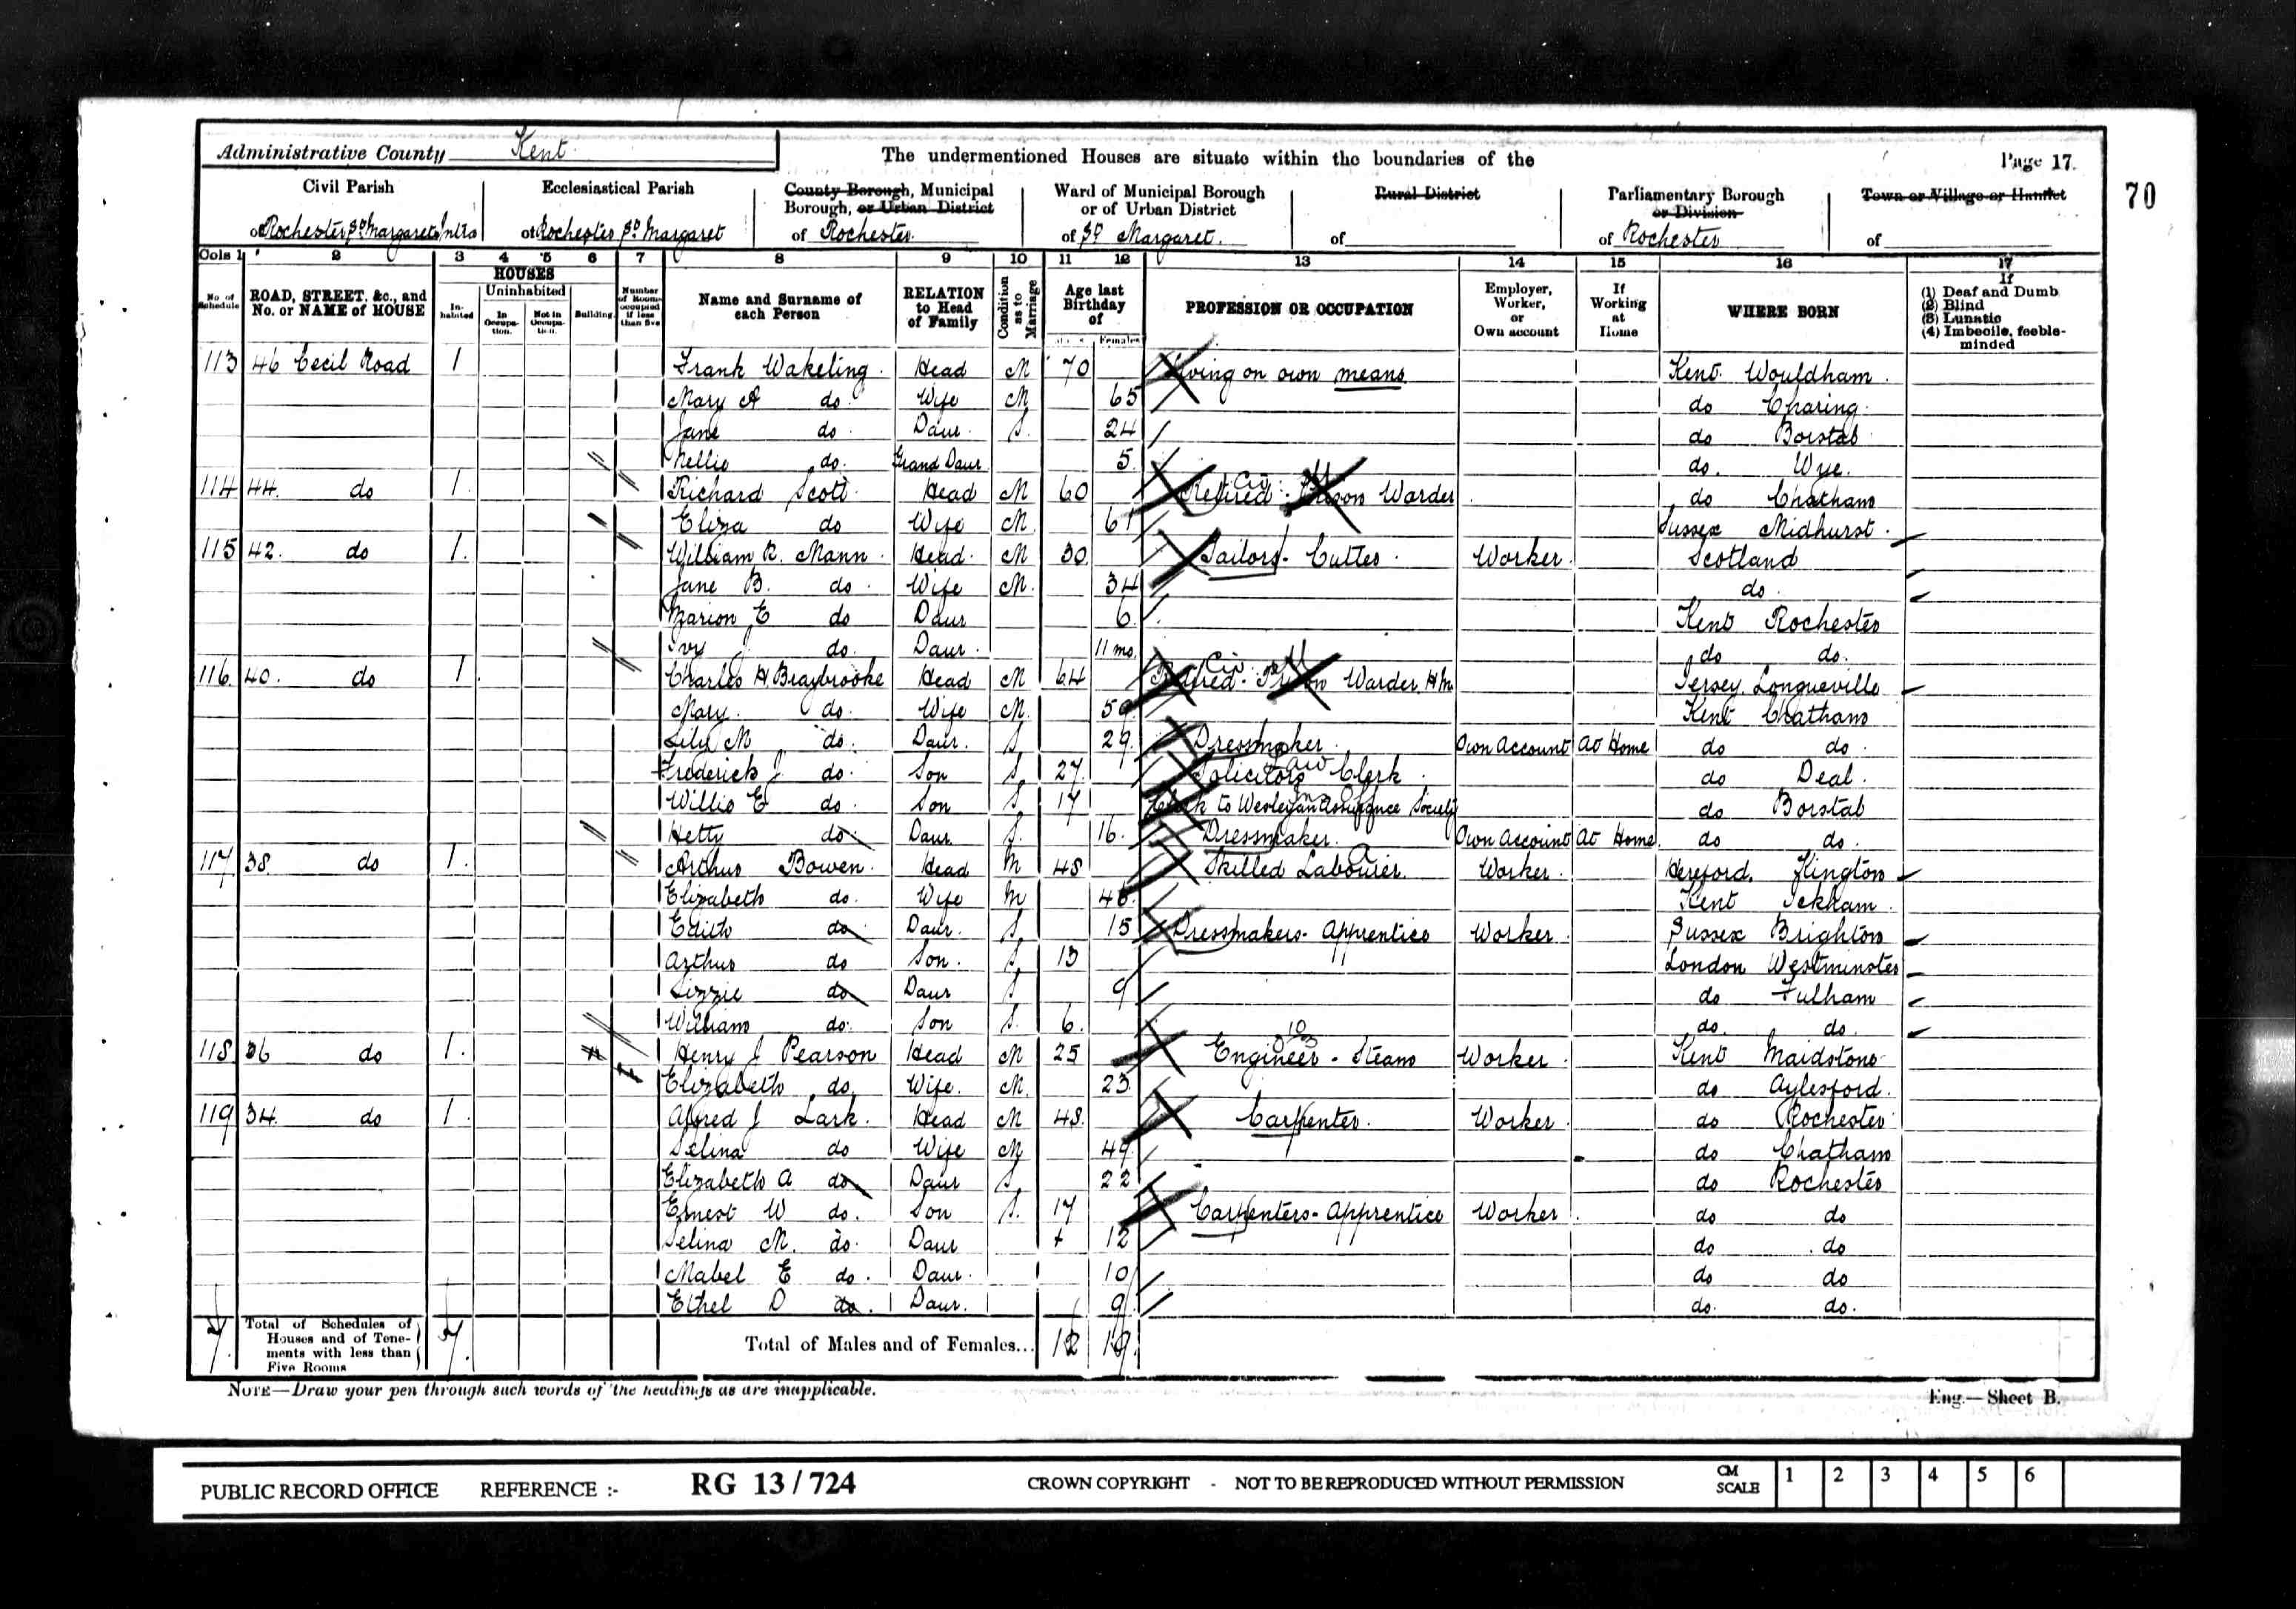 Administrative County Kent
The undermentioned Houses are situate within the boundaries of the
Page 17.
70
Civil Parish
of Rochester St Margarets Intra
Ecclesiastical Parish
of Rochester St Margaret
County Borough, Municipal Borough, or Urban District
of Rochester
Ward of Municipal Borough or of Urban District
of St Margaret.
Rural District
of
Parliamentary Borough or Division
of Rochester
Town or Village or Hamlet
of
Cols 1 2 3 4 5 6 7 8 9 10 11 12 13 14 15 16 17
No. of Schedule
ROAD, STREET, &c., and No. or NAME of HOUSE
HOUSES
Inhabited
Uninhabited
In Occupation.
Not in Occupation.
Building.
Number of Rooms occupied if less than five
Name and Surname of each Person
RELATION to Head of Family
Condition as to Marriage
Age last Birthday of
Males Females
PROFESSION OR OCCUPATION
Employer, Worker, or Own account
If Working at Home
WHERE BORN
If
(1) Deaf and Dumb
(2) Blind
(3) Lunatic
(4) Imbecile, feeble-minded
113 46 Cecil Road 1 Frank Wakeling Head M 70 Living on own means Kent Wouldham
Mary A do Wife M 65 do Charing
Jane do Daur S. 24 do Borstal
Nellie do. Grand Daur 5 do. Wye.
114 44. do 1. Richard Scott Head M 60 Retired Civ: Prison Warder do Chatham
Eliza do Wife M. 61 Sussex Midhurst
115 42. do 1. William R. Mann Head M 30 Tailors Cutter Worker Scotland
Jane B. do Wife M. 34 do
Marion E do Daur 6 Kent Rochester
Ivy J do Daur 11 mo. do do.
116. 40. do 1. Charles H. Braybrooke Head M 64 Retired Civ Prison Warder H.M. Jersey Longueville
Mary. do. Wife M. 59 Kent Chatham
Lily M do. Daur. S 29. Dressmaker Own Account At Home do do.
Frederick J do. Son S. 27 Solicitors Law Clerk do Deal.
Willie E do. Son S. 17 Clerk to Wesleyan Assurance Society do Borstal
Hetty do. Daur. S. 16. Dressmaker. Own Account At Home do do.
117 38. do 1. Arthur Bowen. Head M 48 Skilled Labourer Worker Hereford. Kington
Elizabeth do. Wife M Kent Ickham
Edith do Daur. S. 15 Dressmakers Apprentice Worker Sussex Brighton
Arthur do Son. S. 13 London Westminster
Lizzie do Daur S 9 do Fulham
William do. Son S. 6. do. do.
118 36 do 1. Henry J Pearson Head M 25 Engineer - Steam Worker Kent Maidstone
10
Elizabeth do. Wife. M. 23. do Aylesford.
119 34. do 1. Alfred J Lark. Head M 48. Carpenter. Worker do Rochester
Selina do Wife M 49. do Chatham
Elizabeth A do Daur S. 22 do Rochester
Ernest W do. Son S. 17 Carpenters - Apprentice Worker do do
Selina M. do. Daur 12 do do
Mabel E do. Daur. 10 do do
Ethel D do. Daur. 9 do. do.
7. Total of Schedules of Houses and of Tenements with less than Five Rooms 7. Total of Males and of Females... 12 19.
NOTE—Draw your pen through such words of the headings as are inapplicable.
Eng.—Sheet B.
PUBLIC RECORD OFFICE REFERENCE :- RG 13 / 724 CROWN COPYRIGHT - NOT TO BE REPRODUCED WITHOUT PERMISSION CM SCALE 1 2 3 4 5 6